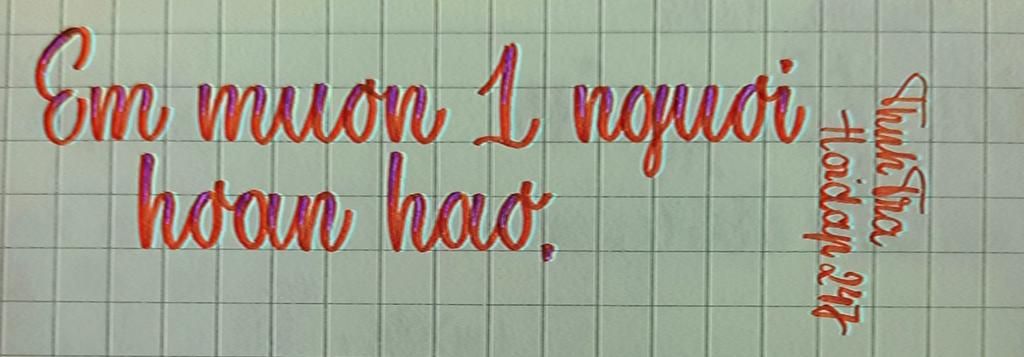 Em muon 1 nguoi
hoan hao.
Thanh Tra
Hoidap247